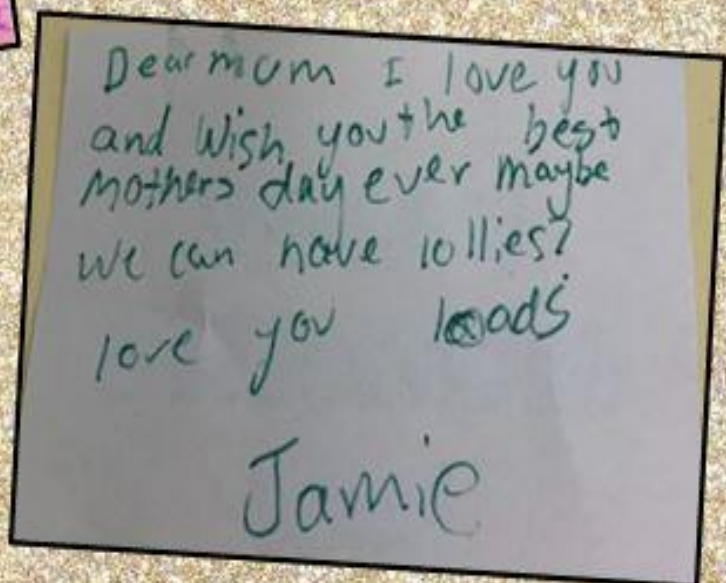 Dear mum I love you
and wish you the best
mothers day ever maybe
we can have lollies?
love you loads
Jamie